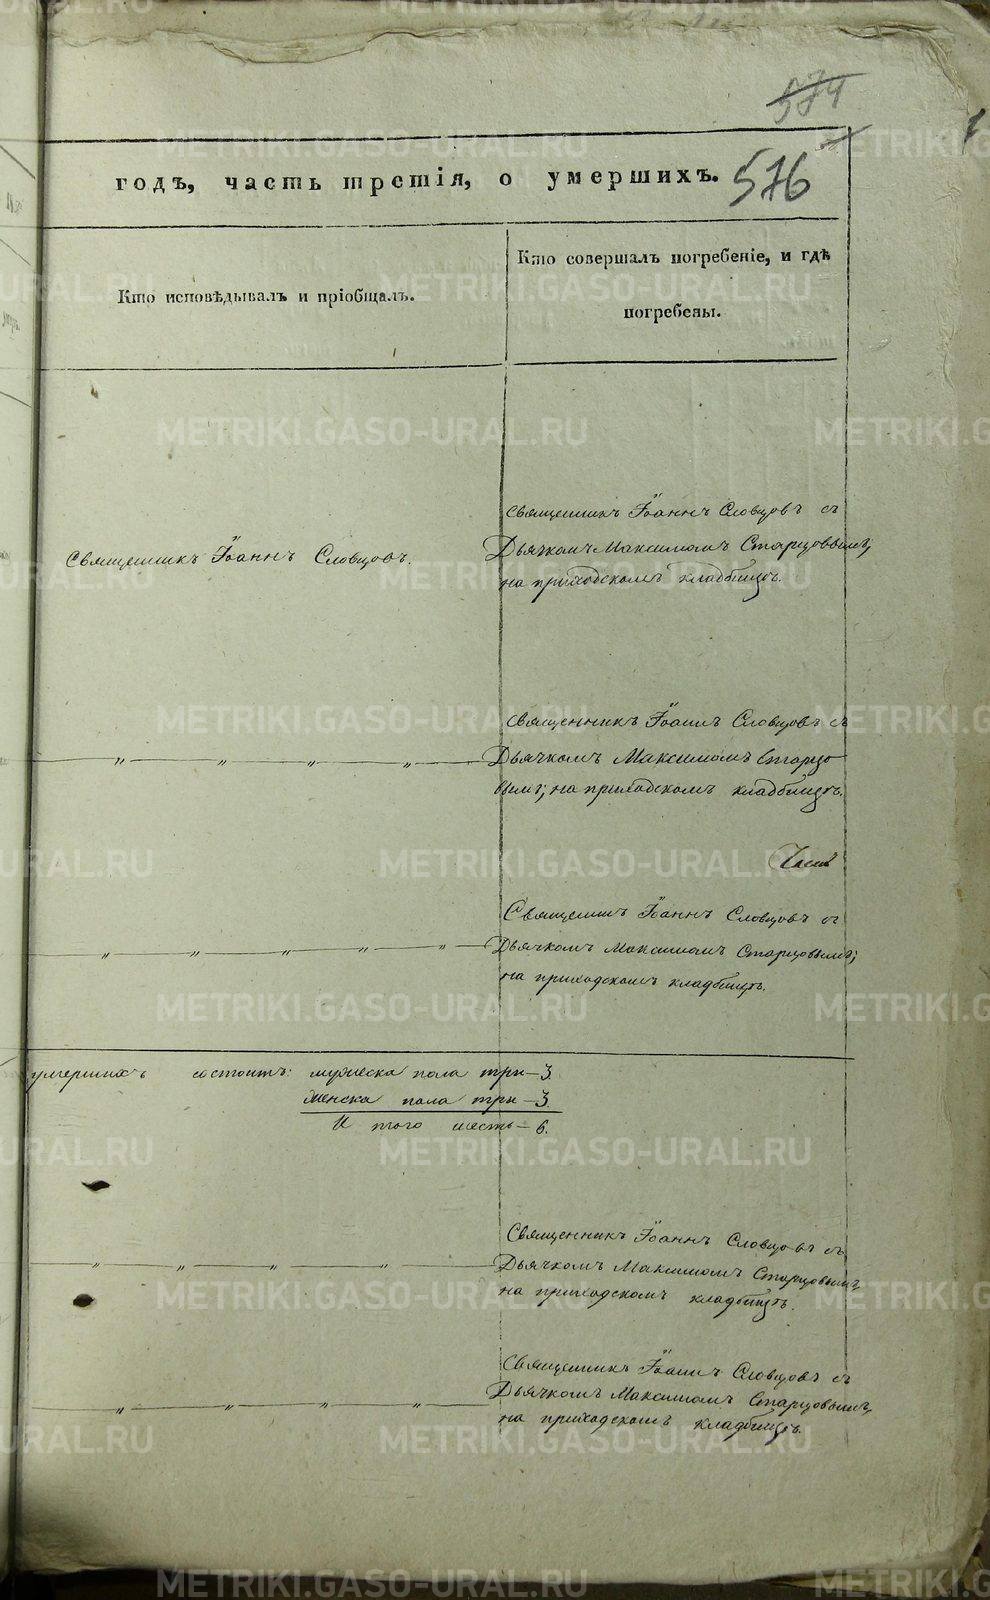 574
576
годъ, часть третія, о умершихъ.
Кто исповѣдывалъ и пріобщалъ.
Кто совершалъ погребеніе, и гдѣ
погребены.
Священникъ Іоаннъ Словцовъ.
Священникъ Іоаннъ Словцовъ съ
Дьячкомъ Максимомъ Старцовымъ;
на приходскомъ кладбищѣ.
— „ — „ — „ — „ —
Священникъ Іоаннъ Словцовъ съ
Дьячкомъ Максимомъ Старцо
вымъ; на приходскомъ кладбищѣ.
Часть
— „ — „ — „ — „ — „ —
Священникъ Іоаннъ Словцовъ съ
Дьячкомъ Максимомъ Старцовымъ;
на приходскомъ кладбищѣ.
умершихъ состоитъ: мужеска пола три – 3.
женска пола три – 3.
И того шесть – 6.
— „ — „ — „ — „ —
Священникъ Іоаннъ Словцовъ съ
Дьячкомъ Максимомъ Старцовымъ,
на приходскомъ кладбищѣ.
— „ — „ — „ — „ —
Священникъ Іоаннъ Словцовъ съ
Дьячкомъ Максимомъ Старцовымъ,
на приходскомъ кладбищѣ.
METRIKI.GASO-URAL.RU